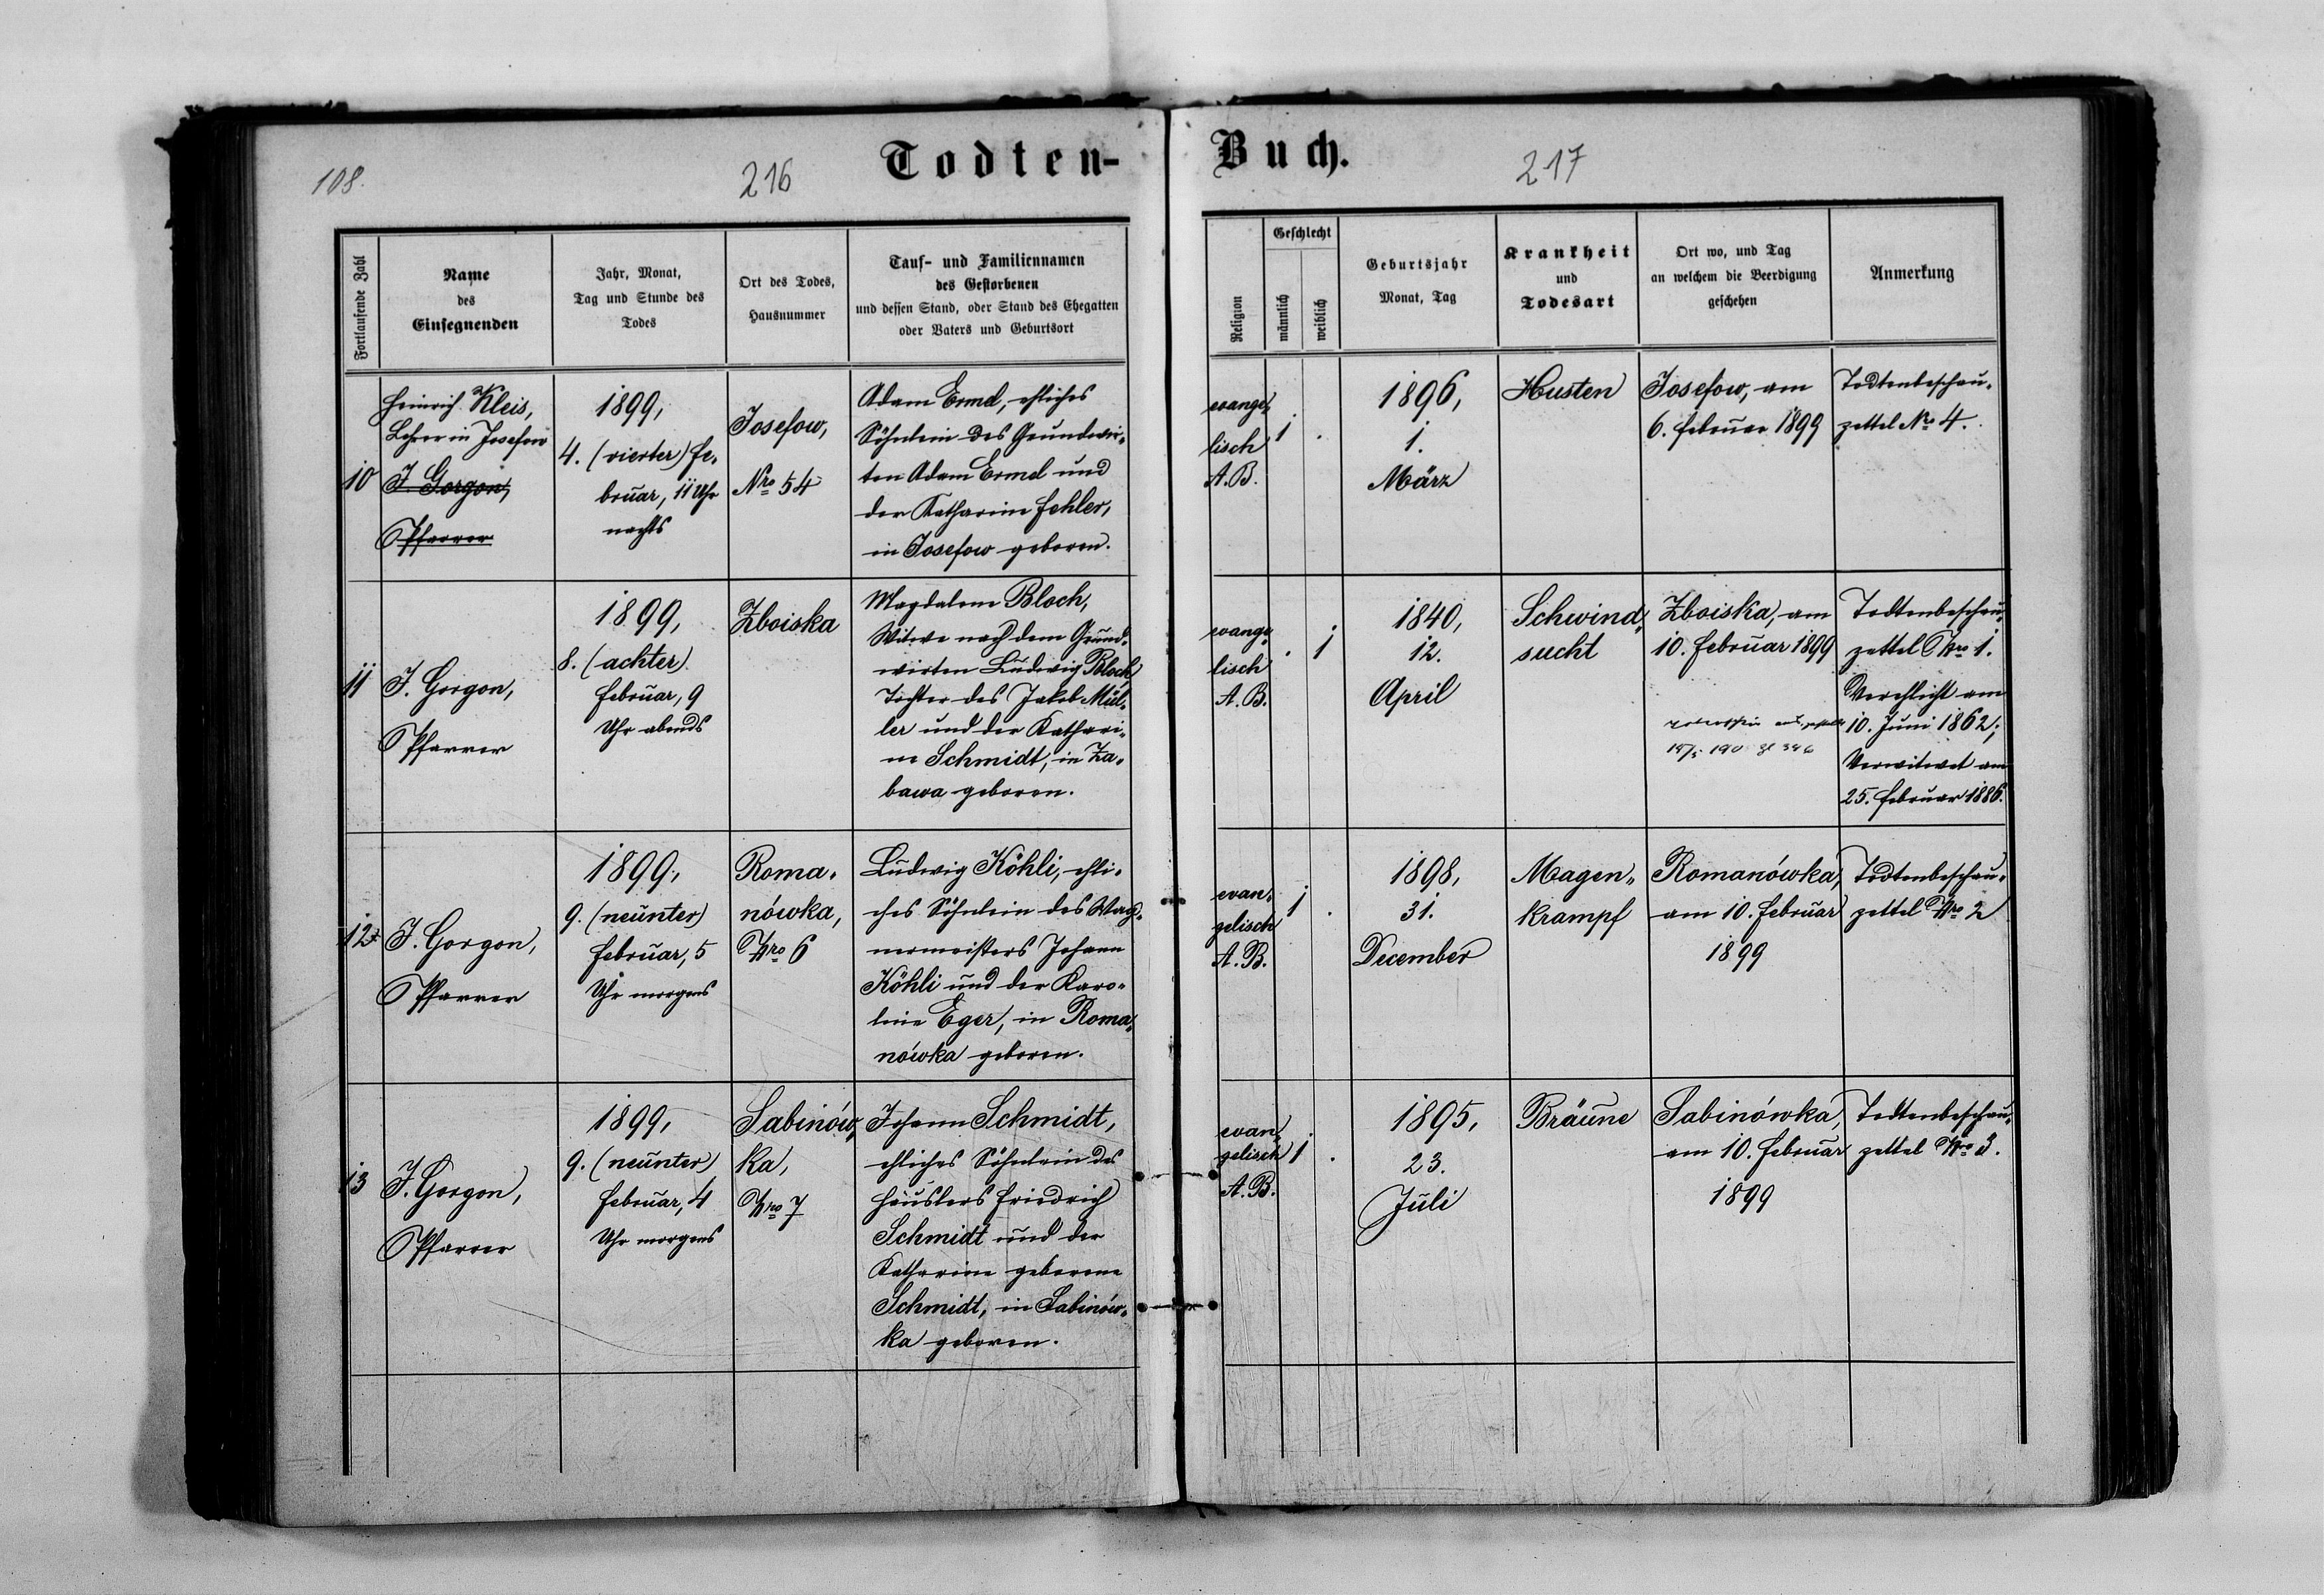 108.
216
Todten-
Buch.
217
Fortlaufende Zahl
Name
des
Einsegnenden
Jahr, Monat,
Tag und Stunde des
Todes
Ort des Todes,
Hausnummer
Tauf- und Familiennamen
des Gestorbenen
und dessen Stand, oder Stand des Ehegatten
oder Vaters und Geburtsort
Religion
Geschlecht
männlich
weiblich
Geburtsjahr
Monat, Tag
Krankheit
und
Todesart
Ort wo, und Tag
an welchem die Beerdigung
geschehen
Anmerkung
10
Heinrich Kleis,
Lehrer in Josefow
J. Gorgon,
Pfarrer
1899,
4. (vierter) Fe„
bruar, 11 Uhr
nachts
Josefow,
Nro 54
Adam Ermel, ehliches
Söhnlein des Grundwir„
ten Adam Ermel und
der Katharine Fehler,
in Josefow geboren.
evange„
lisch
A. B.
1
.
1896,
1.
März
Husten
Josefow, am
6. Februar 1899
Todtenbeschau„
zettel No 4.
11
J. Gorgon,
Pfarrer
1899,
8. (achter)
Februar, 9
Uhr abends
Zboiska
Magdalene Bloch,
Witwe nach dem Grund„
wirten Ludwig Bloch,
Tochter des Jakob Mül„
ler und der Kathari„
ne Schmidt, in Za„
bawa geboren.
evange„
lisch
A. B.
.
1
1840,
12.
April
Schwind„
sucht
Zboiska, am
10. Februar 1899
Todtenbeschau„
zettel Nro 1.
Verehlicht am
10. Juni 1862;
Verwitwet am
25. Februar 1886.
12
J. Gorgon,
Pfarrer
1899,
9. (neunter)
Februar, 5
Uhr morgens
Roma„
nówka,
Nro 6
Ludwig Köhli, ehli„
ches Söhnlein des Wag„
nermeisters Johann
Köhli und der Karo„
line Eger, in Roma„
nówka geboren.
evan„
gelisch
A. B.
1
.
1898,
31.
December
Magen„
krampf
Romanówka,
am 10. Februar
1899
Todtenbeschau„
zettel Nro 2
13
J. Gorgon,
Pfarrer
1899,
9. (neunter)
Februar, 4
Uhr morgens
Sabinów„
ka,
Nro 7
Johann Schmidt,
ehliches Söhnlein des
Häuslers Friedrich
Schmidt und der
Katharine geborene
Schmidt, in Sabinów„
ka geboren.
evan„
gelisch
A. B.
1
.
1895,
23.
Juli
Bräune
Sabinówka,
am 10. Februar
1899
Todtenbeschau„
zettel Nro 3.